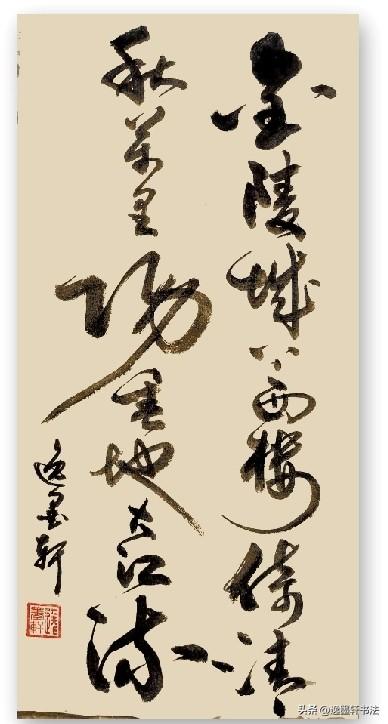 金陵城上西樓倚清
秋萬里陽垂地大江流
逸墨軒
头条 @逸墨轩书法